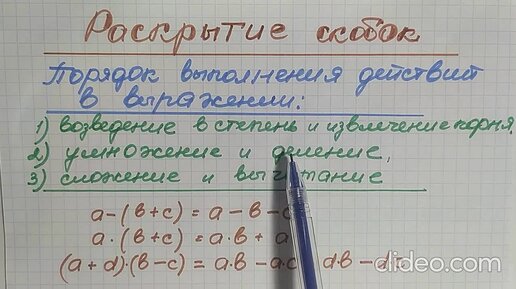 Раскрытие скобок
Порядок выполнения действий
в выражении:
1) возведение в степень и извлечение корня,
2) умножение и деление,
3) сложение и вычитание
a-(b+c)=a-b-c
a·(b+c)=a·b+a
(a+d)·(b-c)=a·b-a·c d·b-d·c
dideo.com